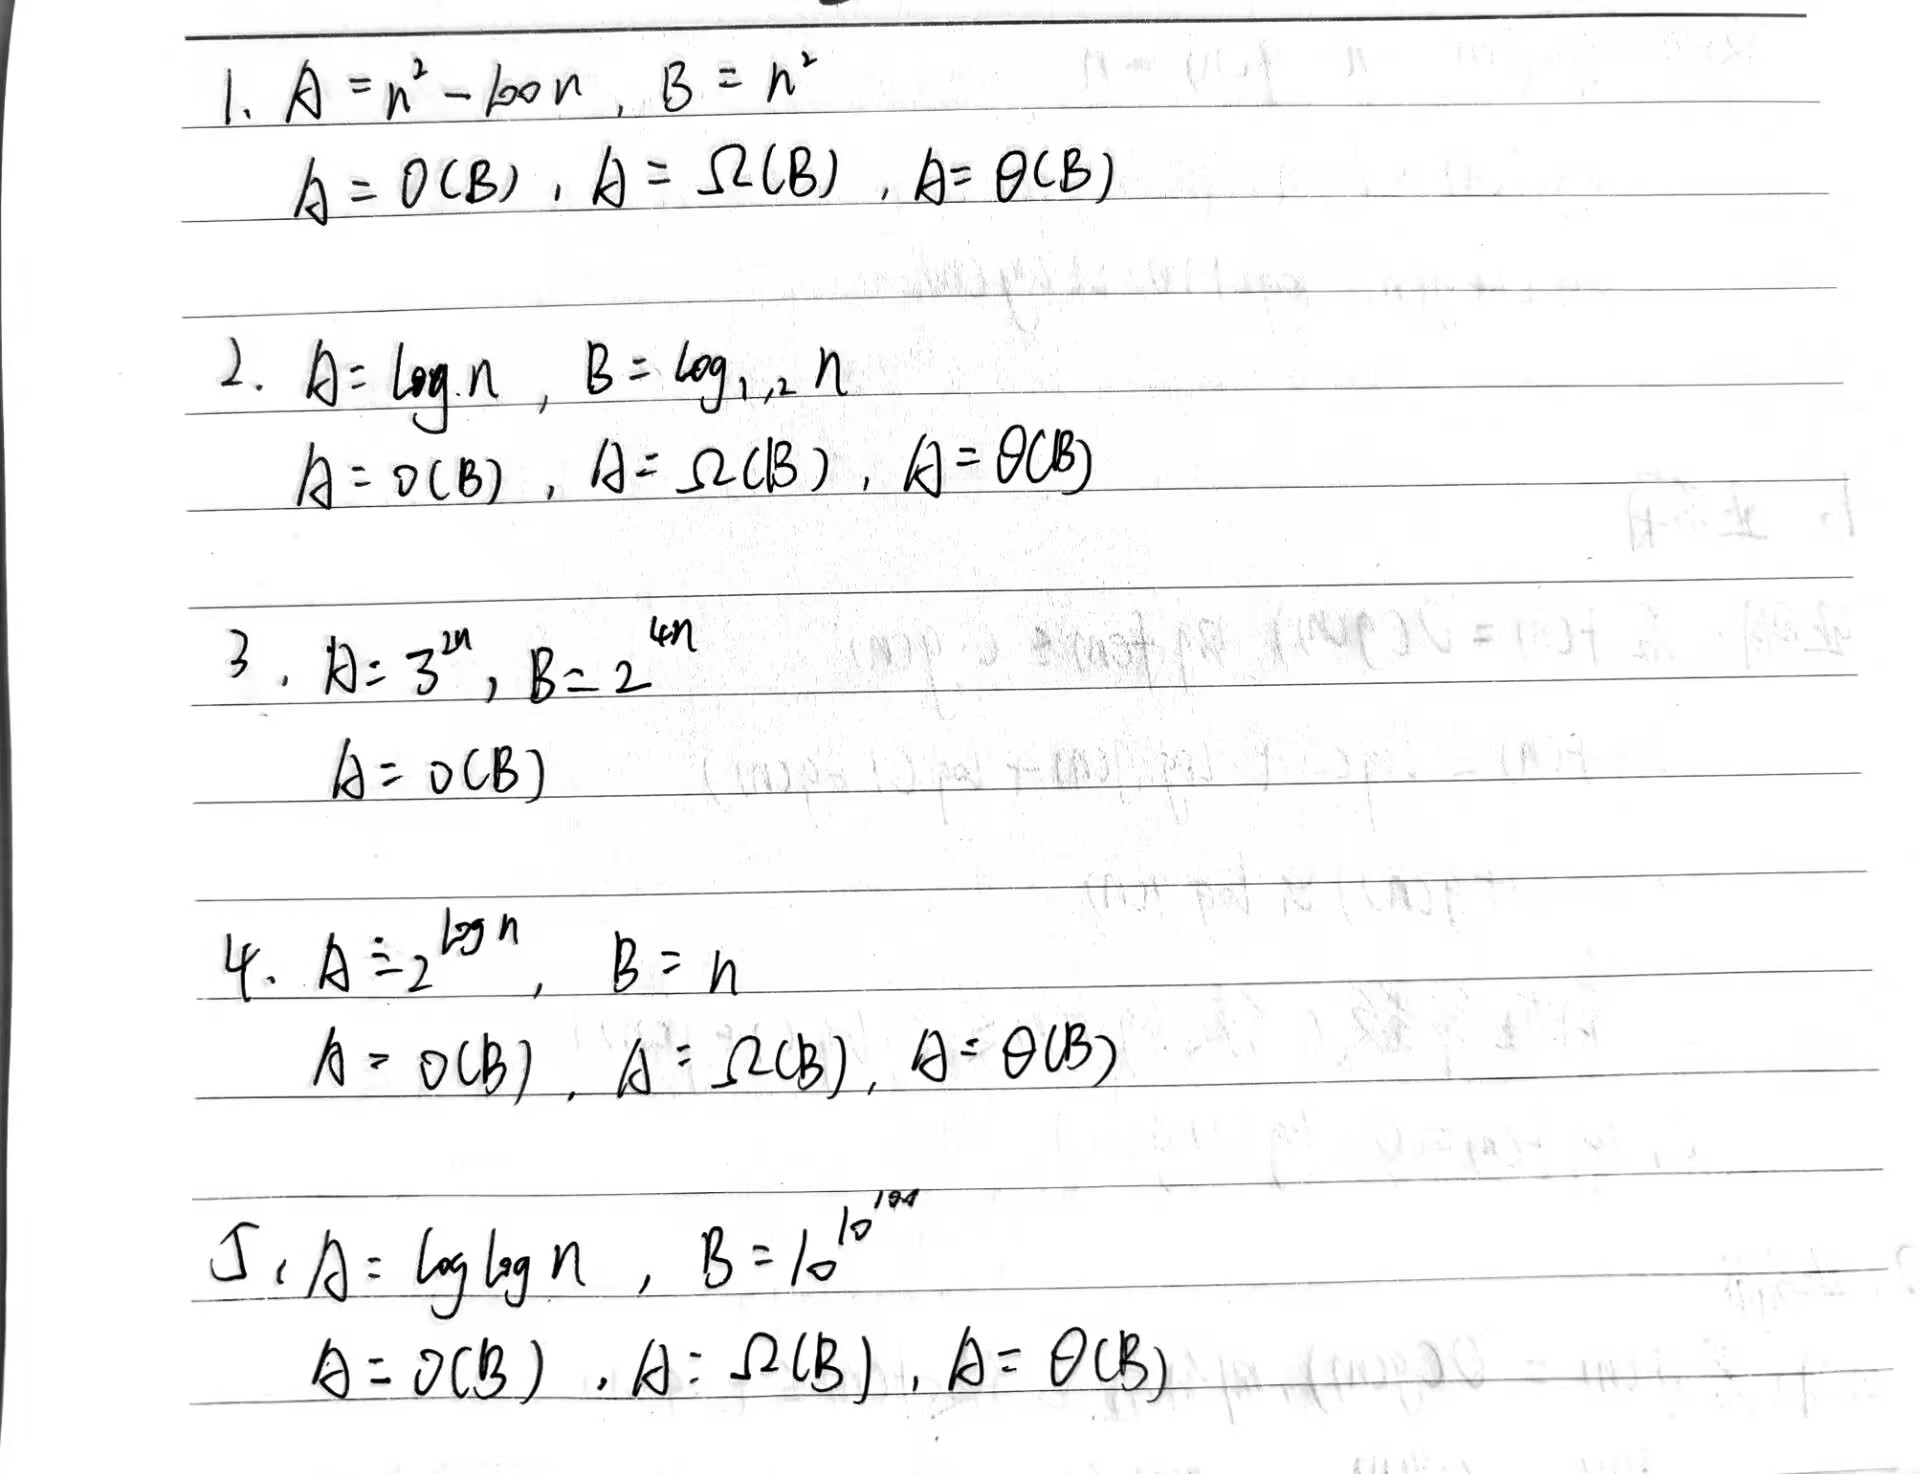 1. A = n² - 100n, B = n²
A = O(B), A = Ω(B), A = θ(B)
2. A = log n, B = log₁.₂ n
A = O(B), A = Ω(B), A = θ(B)
3. A = 3²ⁿ, B = 2⁴ⁿ
A = O(B)
4. A = 2^(log n), B = n
A = O(B), A = Ω(B), A = θ(B)
5. A = log log n, B = 10^10^100
A = O(B), A = Ω(B), A = θ(B)